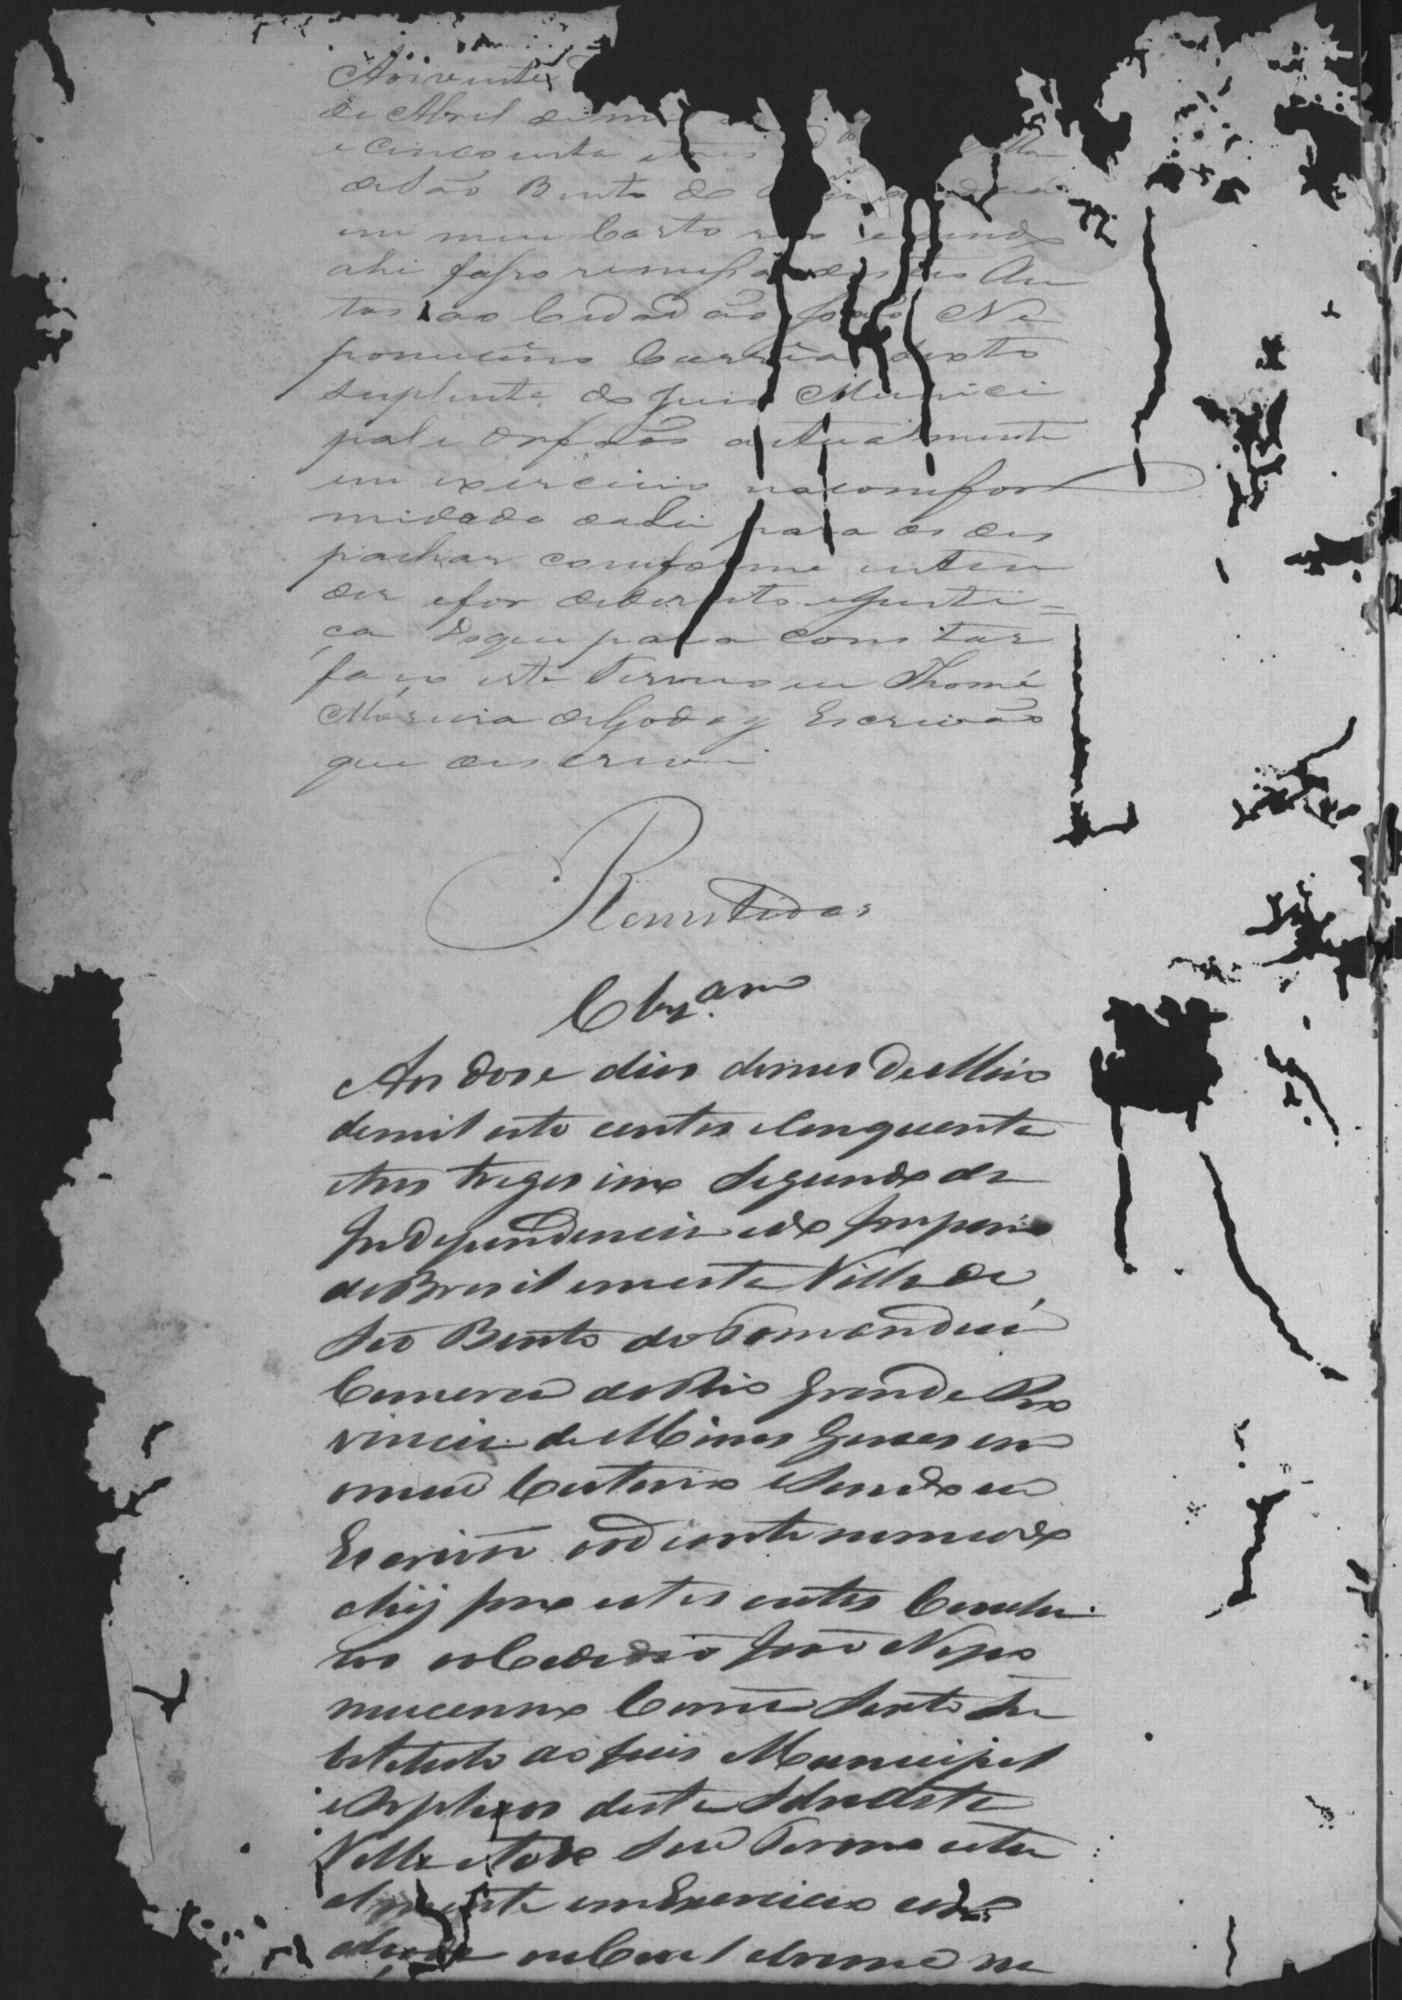 Aos vinte
de Abril de mil
e cincoenta e tres
de São Bento do
em meu Cartorio e sendo
ahi faço remessa destes Au
tos ao Cidadão João Ne
pomuceno Corrêa sexto
suplente do Juis Munici
pal e Orfãos actualmente
em exercicio na comfor
midade da Lei para os des
pachar comforme enten
der e for de Dereito e Justi=
ça do que para constar
faço este Termo eu Thomé
Moreira de Godoy Escrivão
que o escrevi
Remetidos
Clz.am
Aos dose dias do mes de Maio
de mil oito centos e Cinquenta
e tres trigesimo Segundo da
Independencia e do Imperio
do Brasil em esta Villa de
São Bento do Tamanduá
Comarca do Rio Grande Pro
vincia de Minas Geraes em
o meu Cartorio e Sendo eu
Escrivão ao diante nomeado
ahij faço estes autos Conclu
sos ao Cidadão João Nepo
muceno Corrêa Sexto Su
bstituto do Juis Municipal
e Orphaos desta
Villa e todo Seu Termo actu
almente em Exercicio